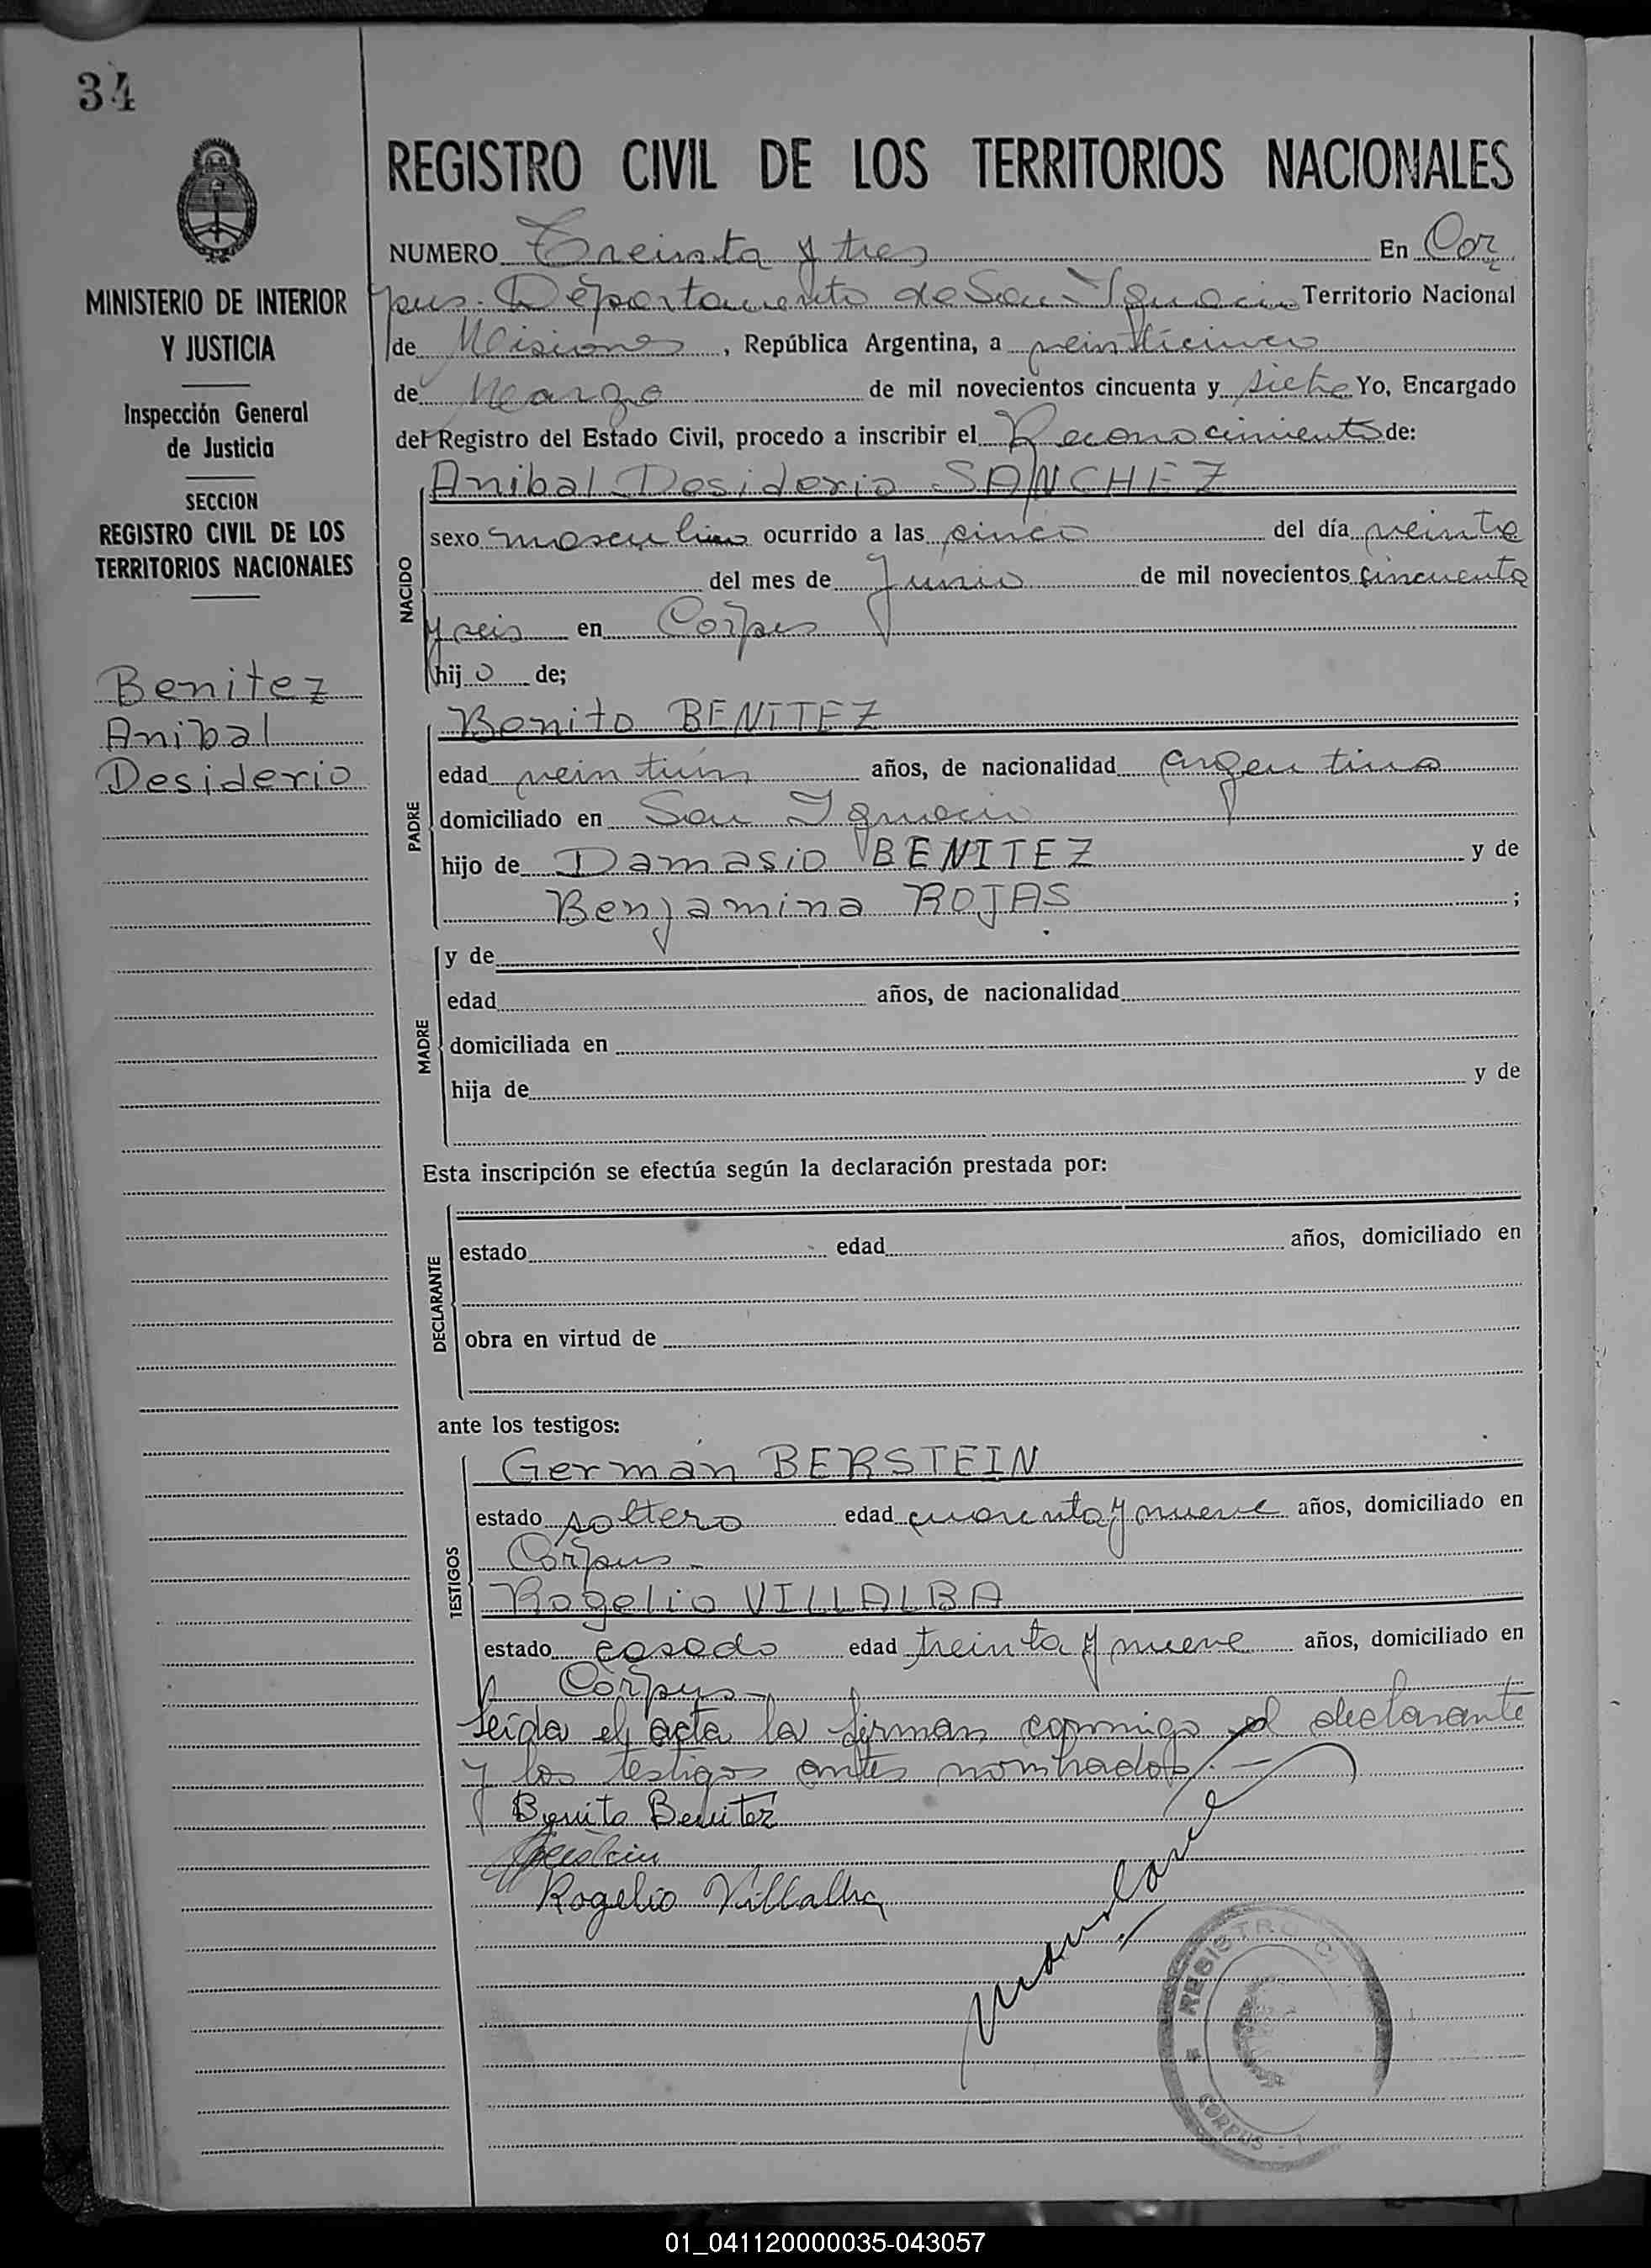 34
REGISTRO CIVIL DE LOS TERRITORIOS NACIONALES
MINISTERIO DE INTERIOR
Y JUSTICIA
Inspección General
de Justicia
SECCION
REGISTRO CIVIL DE LOS
TERRITORIOS NACIONALES
Benitez
Anibal
Desiderio
NUMERO Treinta y tres En Cor
pus. Departamento de San Ignacio Territorio Nacional
de Misiones, República Argentina, a veinticinco
de Marzo de mil novecientos cincuenta y siete Yo, Encargado
del Registro del Estado Civil, procedo a inscribir el Reconocimiento de:
NACIDO
Anibal Desiderio SANCHEZ
sexo masculino ocurrido a las cinco del día veinte
del mes de Junio de mil novecientos cincuenta
y seis en Corpus
hijo de;
PADRE
Benito BENITEZ
edad veintiún años, de nacionalidad argentina
domiciliado en San Ignacio
hijo de Damasio BENITEZ y de
Benjamina ROJAS ;
MADRE
y de
edad años, de nacionalidad
domiciliada en
hija de y de
Esta inscripción se efectúa según la declaración prestada por:
DECLARANTE
estado edad años, domiciliado en
obra en virtud de
ante los testigos:
TESTIGOS
Germán BERSTEIN
estado soltero edad cuarenta y nueve años, domiciliado en
Corpus
Rogelio VILLALBA
estado casado edad treinta y nueve años, domiciliado en
Corpus
Leída el acta la firman conmigo el declarante
y los testigos antes nombrados.-
Benito Benitez
Rogelio Villalba
REGISTRO C
CORPUS
01_041120000035-043057